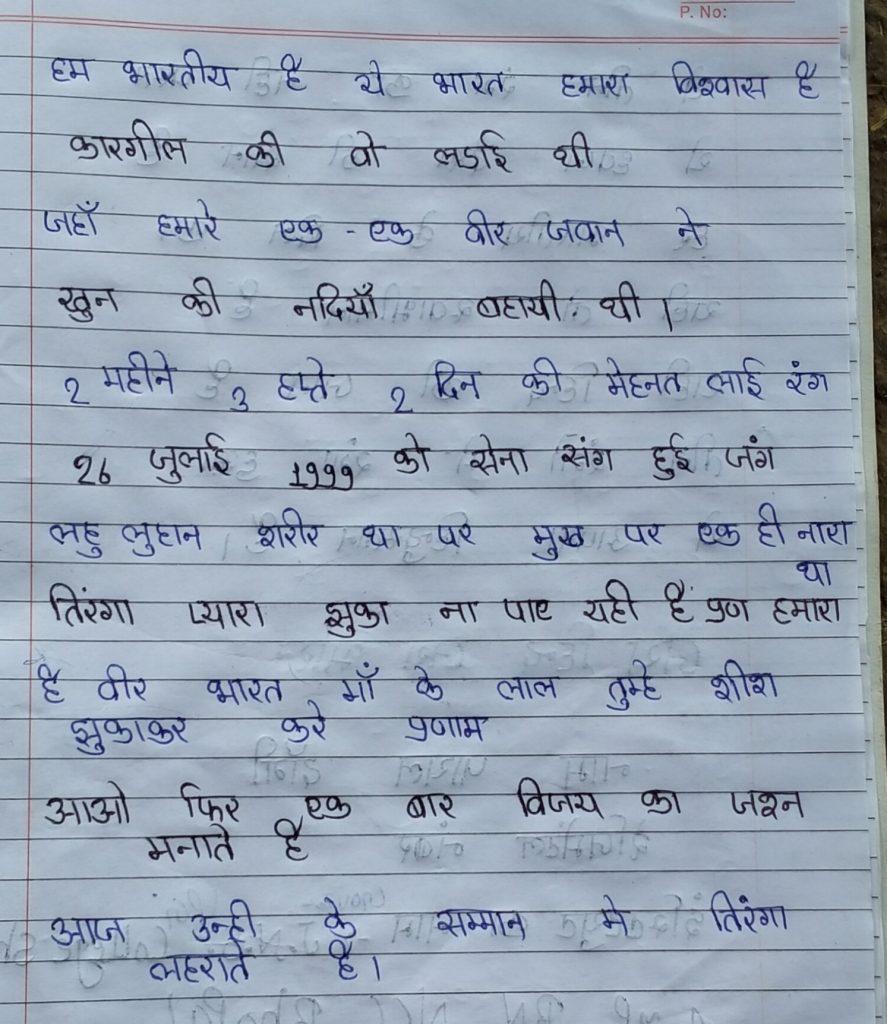 P. No:
हम भारतीय है ये भारत हमारा विश्वास है
कारगील की वो लडाई थी
जहाँ हमारे एक - एक वीर जवान ने
खुन की नदियाँ बहायी थी।
2 महीने 3 हफ्ते 2 दिन की मेहनत लाई रंग
26 जुलाई 1999 को सेना संग हुई जंग
लहु लुहान शरीर था पर मुख पर एक ही नारा
था
तिरंगा प्यारा झुका ना पाए यही है प्रण हमारा
है वीर भारत माँ के लाल तुम्हे शीश
झुकाकर करे प्रणाम
आओ फिर एक बार विजय का जश्न
मनाते है
आज उन्ही के सम्मान मे तिरंगा
लहराते है।